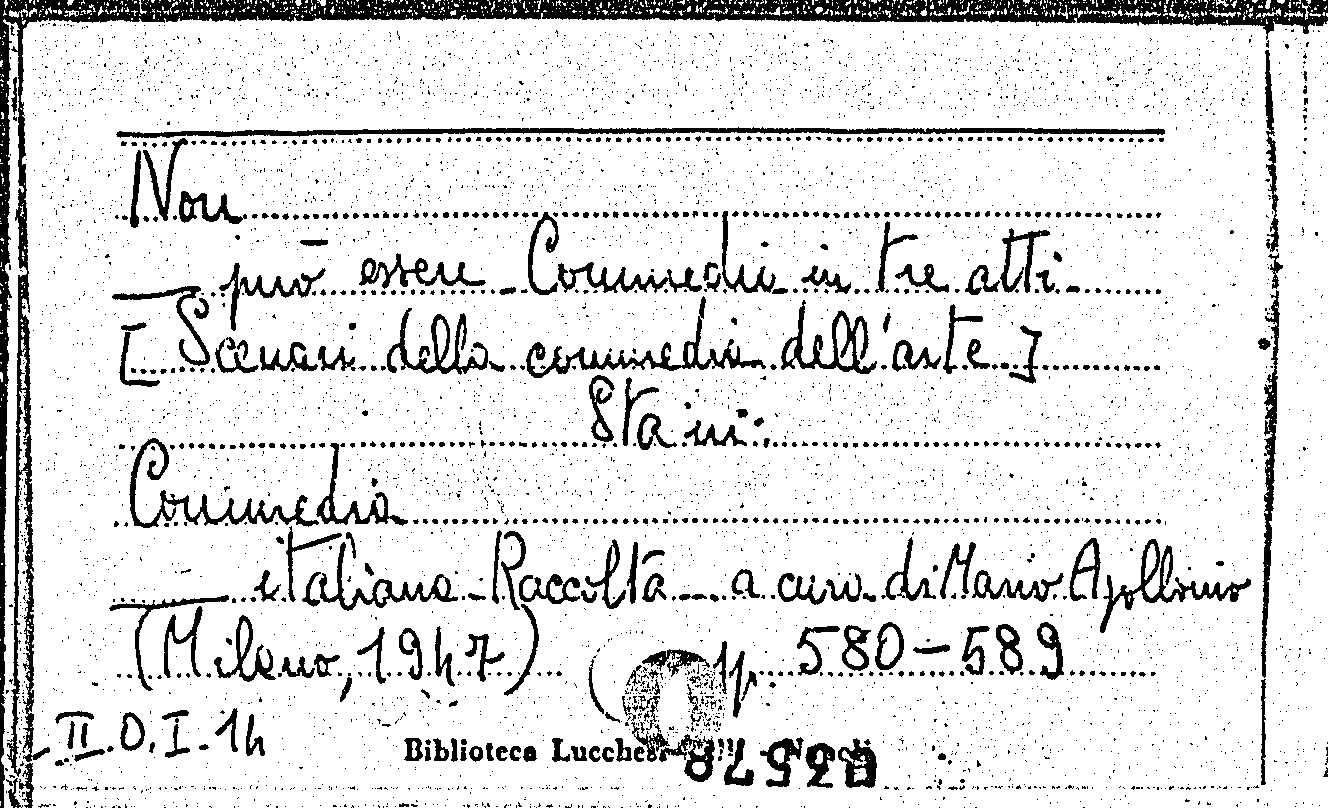 Non
— può essere - Commedia in tre atti -
[Scenari della commedia dell'arte]
Sta in:
Commedia
— italiana - Raccolta - a cura di Mario Apollonio
(Milano, 1947) pp. 580-589
II.O.I.14
Biblioteca Lucchesi - Napoli